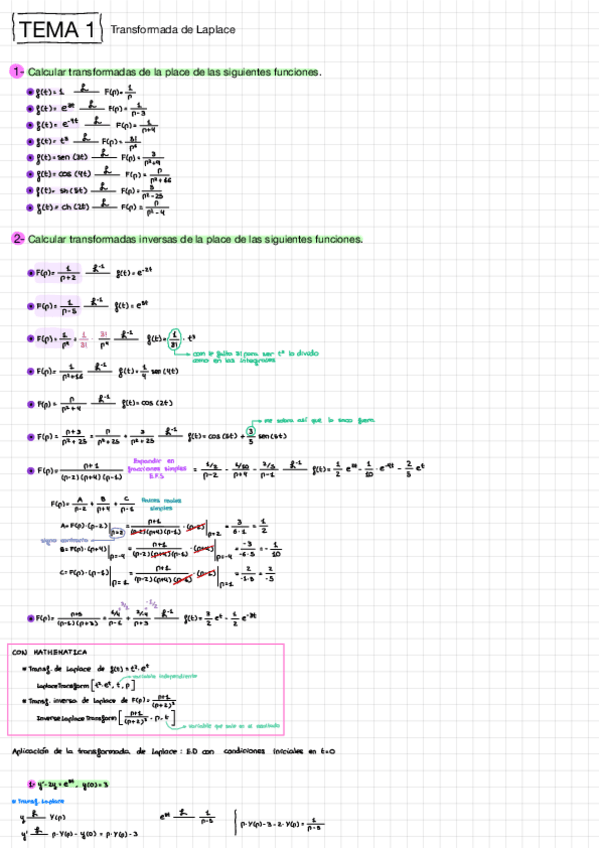 TEMA 1 Transformada de Laplace
1- Calcular transformadas de la place de las siguientes funciones.
f(t) = 1 ℒ F(p) = 1/p
f(t) = e^3t ℒ F(p) = 1/(p-3)
f(t) = e^-4t ℒ F(p) = 1/(p+4)
f(t) = t³ ℒ F(p) = 3!/p⁴
f(t) = sen (3t) ℒ F(p) = 3/(p²+9)
f(t) = cos (4t) ℒ F(p) = p/(p²+16)
f(t) = sh (5t) ℒ F(p) = 5/(p²-25)
f(t) = ch (2t) ℒ F(p) = p/(p²-4)
2- Calcular transformadas inversas de la place de las siguientes funciones.
F(p) = 1/(p+2) ℒ^-1 f(t) = e^-2t
F(p) = 1/(p-5) ℒ^-1 f(t) = e^5t
F(p) = 1/p⁴ = 1/3! · 3!/p⁴ ℒ^-1 f(t) = 1/3! · t³
com le falta 3! para ser t³ lo divido
como en las integrales
F(p) = 1/(p²+16) ℒ^-1 f(t) = 1/4 sen (4t)
F(p) = p/(p²+4) ℒ^-1 f(t) = cos (2t)
me sobra así que lo saco fuera
F(p) = (p+3)/(p²+25) = p/(p²+25) + 3/(p²+25) ℒ^-1 f(t) = cos (5t) + 3/5 sen (5t)
Expandir en
fracciones simples
E.F.S
F(p) = (p+1)/((p-2)(p+4)(p-1)) = (1/2)/(p-2) - (1/10)/(p+4) - (2/5)/(p-1) ℒ^-1 f(t) = 1/2 e^2t - 1/10 e^-4t - 2/5 e^t
F(p) = A/(p-2) + B/(p+4) + C/(p-1) Raíces reales
simples
A = F(p)·(p-2)|p=2 = (p+1)/((p-2)(p+4)(p-1)) · (p-2)|p=2 = 3/(6·1) = 1/2
signo contrario
B = F(p)·(p+4)|p=-4 = (p+1)/((p-2)(p+4)(p-1)) · (p+4)|p=-4 = -3/(-6·-5) = -1/10
C = F(p)·(p-1)|p=1 = (p+1)/((p-2)(p+4)(p-1)) · (p-1)|p=1 = 2/(-1·5) = 2/-5
F(p) = (p+5)/((p-1)(p+3)) = (6/4)/(p-1) + (2/-4)/(p+3) ℒ^-1 f(t) = 3/2 e^t - 1/2 e^-3t
3/2 -1/2
CON MATHEMATICA
Transf. de Laplace de f(t) = t²·e^t
variable independiente
LaplaceTransform [t²·e^t, t, p]
Transf. inversa de Laplace de F(p) = (p+1)/(p+2)²
InverseLaplaceTransform [(p+1)/(p+2)², p, t]
variable que sale en el resultado
Aplicación de la transformada de Laplace: E.D con condiciones iniciales en t=0
1- y'-2y = e^5t, y(0) = 3
Transf. Laplace
y ℒ Y(p) e^5t ℒ 1/(p-5) p·Y(p)-3-2·Y(p) = 1/(p-5)
y' ℒ p·Y(p) - y(0) = p·Y(p)-3